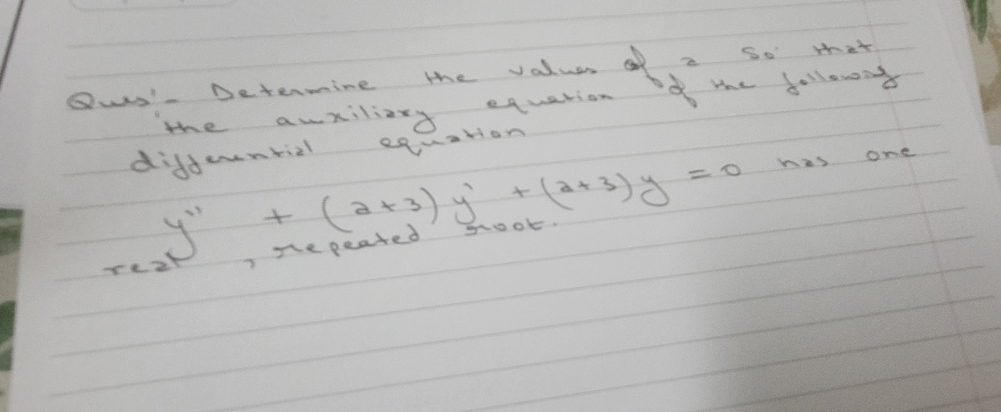 Ques:- Determine the values of a so that
the auxiliary equation of the following
differential equation
y'' + (a+3) y' + (a+3) y = 0 has one
real, repeated root.